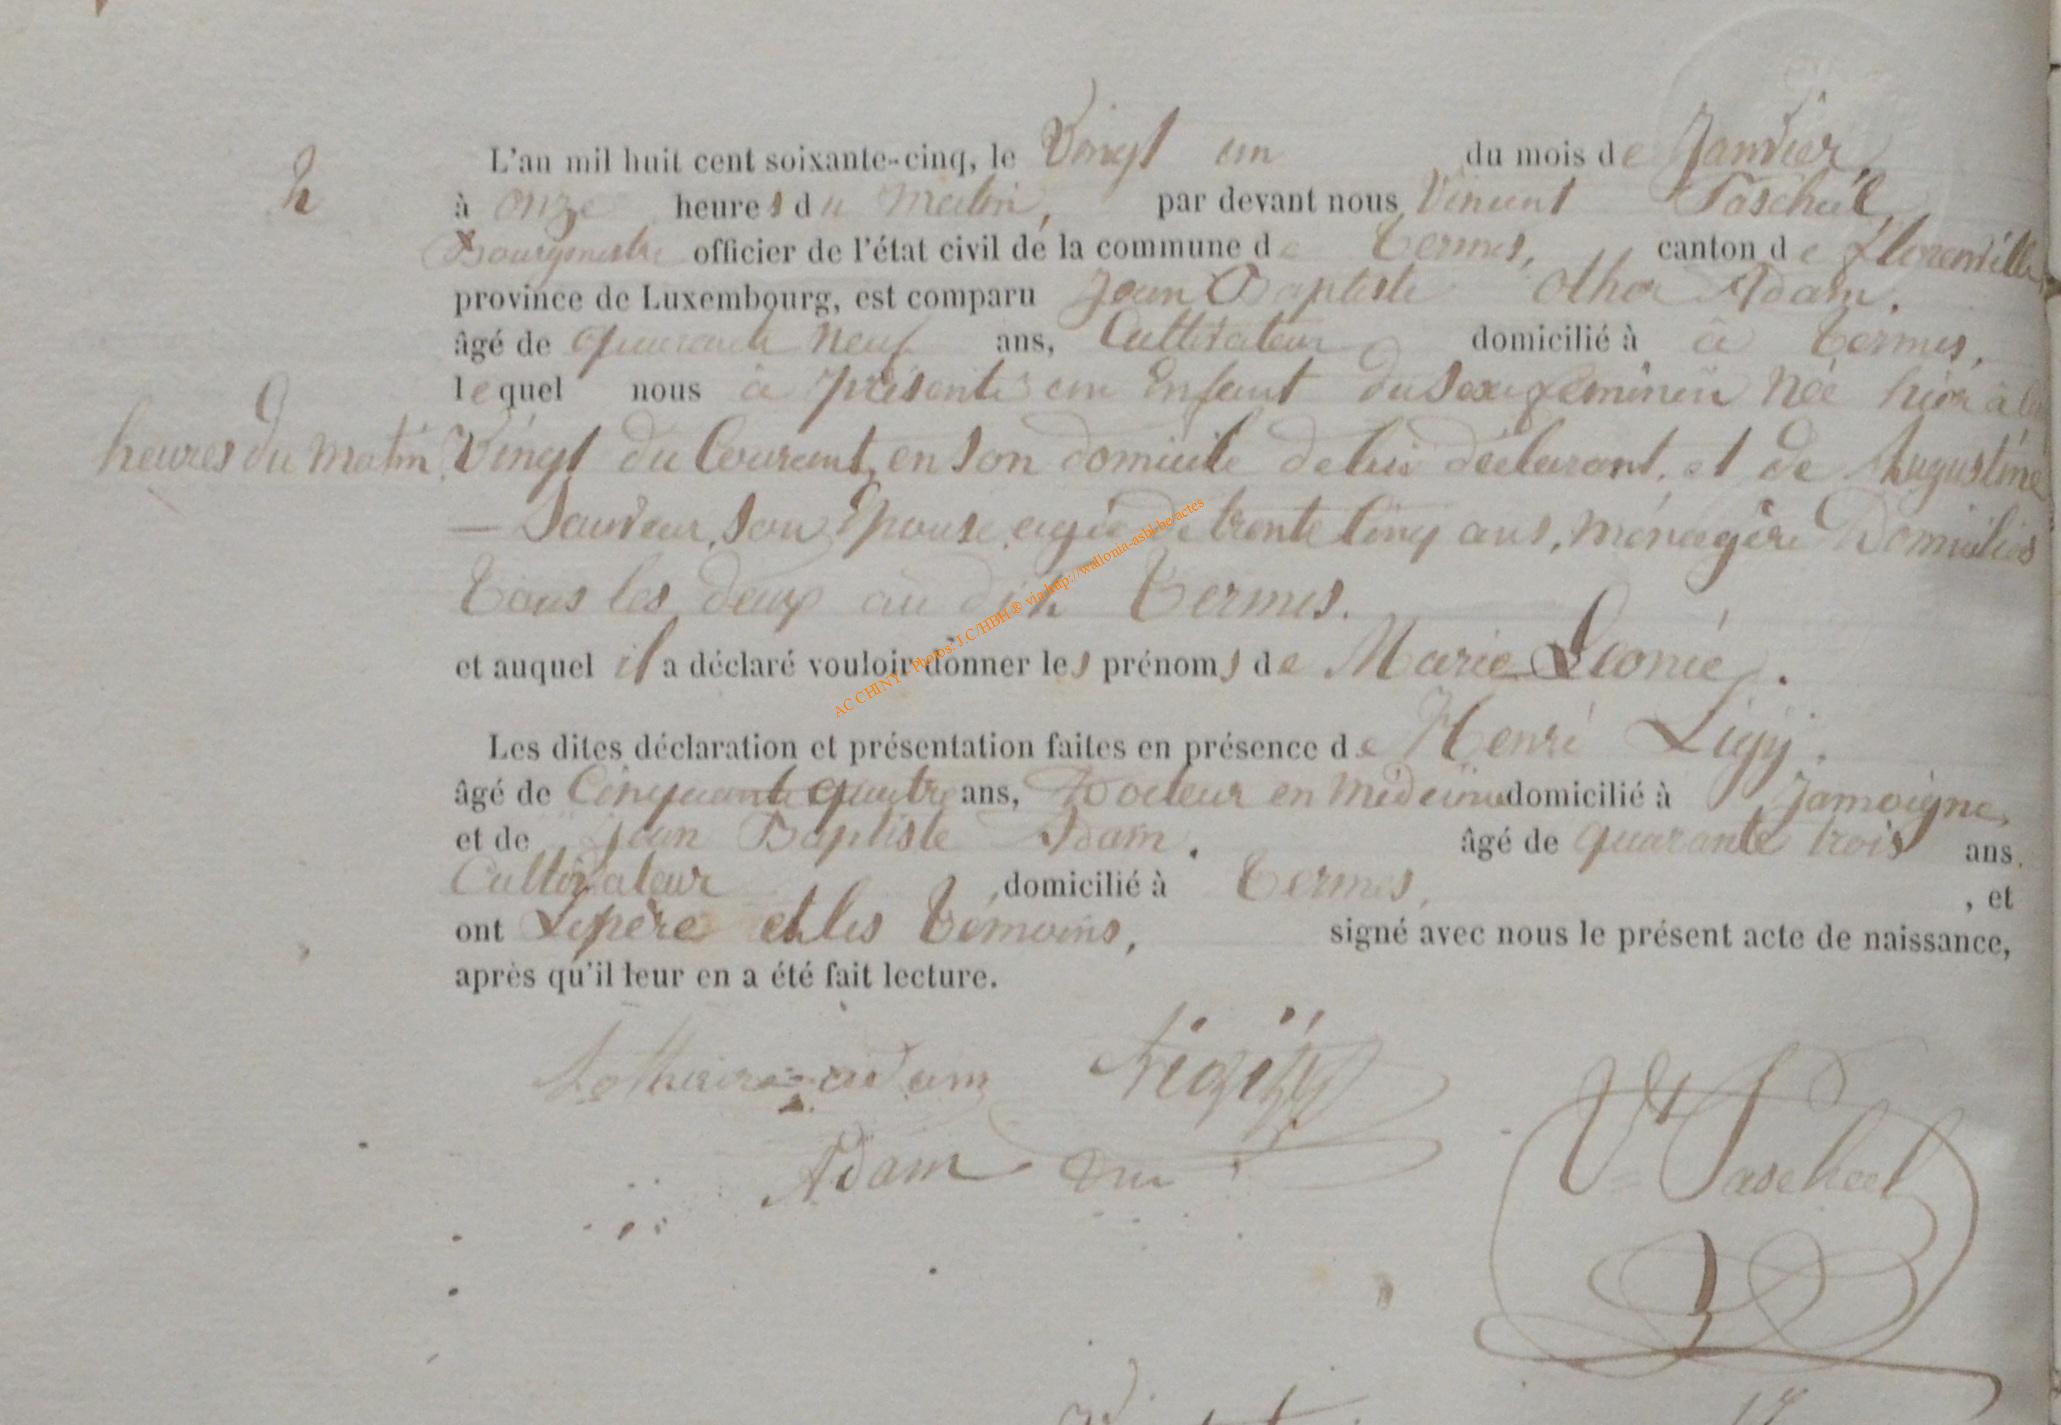 2 L'an mil huit cent soixante-cinq, le Vingt un du mois de Janvier,
à onze heures du matin, par devant nous Vincent Paschal,
Bourgmestre officier de l'état civil de la commune de Termes, canton de Florenville
province de Luxembourg, est comparu Jean Baptiste Adam.
âgé de quarante neuf ans, Cultivateur domicilié à à Termes,
lequel nous a présenté un Enfant du Sexe féminin Née hier à
heures du matin Vingt du Courant, en son domicile de lui déclarant, et de Augustine
— Sauveur, son Epouse, agée de trente cinq ans, ménagère Domiciliés
tous les deux au dit Termes.
et auquel il a déclaré vouloir donner les prénoms de Marie Léonie.
Les dites déclaration et présentation faites en présence de Henri
âgé de Cinquante quatre ans, Docteur en médecine domicilié à Jamoigne,
et de Jean Baptiste Adam. âgé de quarante trois ans.
Cultivateur domicilié à Termes, , et
ont Le père et les témoins, signé avec nous le présent acte de naissance,
après qu'il leur en a été fait lecture.
Adam
Adam
AC CHINY - Photos: J.C/HBH® via http://wallonia-asbl-be/actes